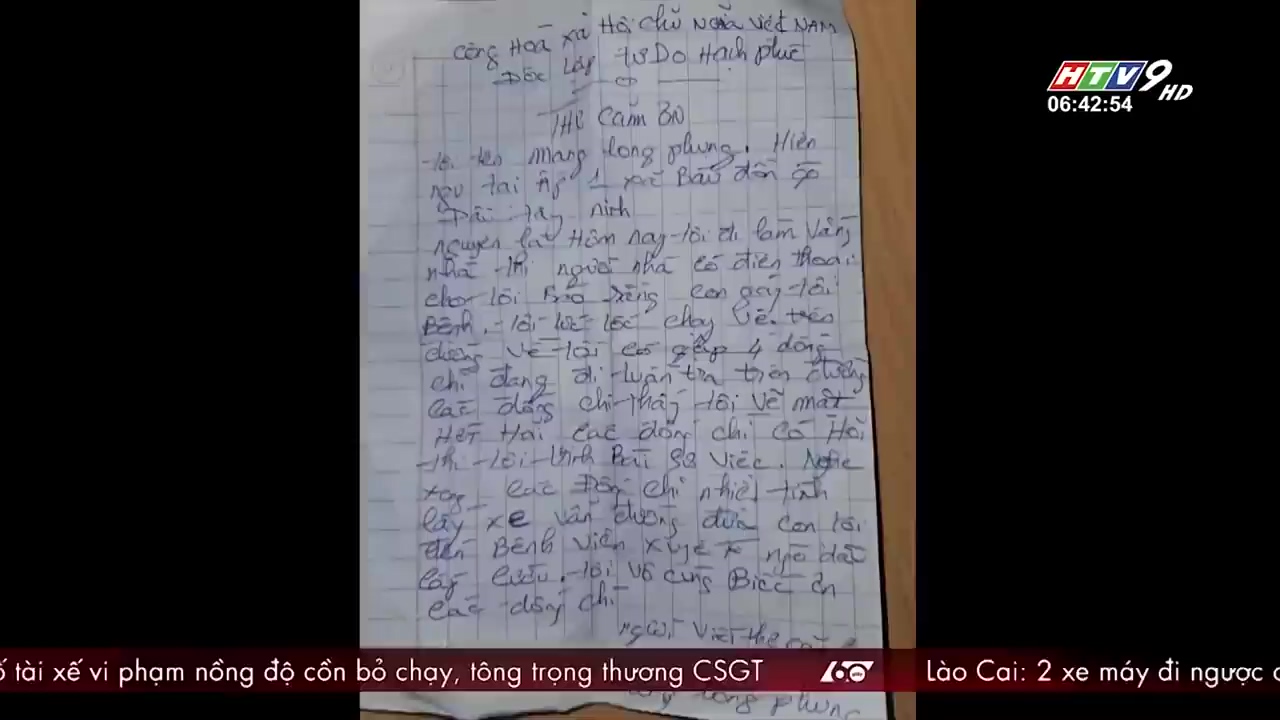 Cộng Hoà xã Hội chủ Nghĩa Việt NAM
Độc Lập tự Do Hạnh phúc
THƯ Cảm ƠN
tôi tên mang long phụng. Hiện
ngụ tại ấp 1 xã Bàu đồn gò
Dầu tây ninh
nguyên là Hôm nay tôi đi làm vắng
nhà thì người nhà có điện thoại
cho tôi Báo rằng con gáy tôi
Bệnh. tôi tức tốc chạy về. trên
đường về tôi có gặp 4 đồng
chí đang đi tuần tra trên đường
các đồng chí thấy tôi vẽ mặt
HốT Hoải các đồng chí có Hỏi
thì tôi trình Bài sự việc. Nghe
xong các Đồng chí nhiệt tình
lấy xe vẫn đường đưa con tôi
đến Bệnh viện xuyên á
cấy cứu. tôi vô cùng Biếc ơn
các đồng chí
người viết thư
long phụng
HTV9 HD
06:42:54
ố tài xế vi phạm nồng độ cồn bỏ chạy, tông trọng thương CSGT
60 giây
Lào Cai: 2 xe máy đi ngược